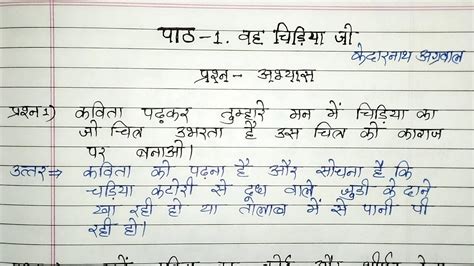 पाठ-1. वह चिड़िया जो
केदारनाथ अग्रवाल
प्रश्न - अभ्यास
प्रश्न1) कविता पढ़कर तुम्हारे मन में चिड़िया का
जो चित्र उभरता है उस चित्र को कागज
पर बनाओ।
उत्तर⇒ कविता को पढ़ना है और सोचना है कि
चड़िया कटोरी से दूध वाले जुडी के दाने
खा रही हो या तालाब में से पानी पी
रही हो।